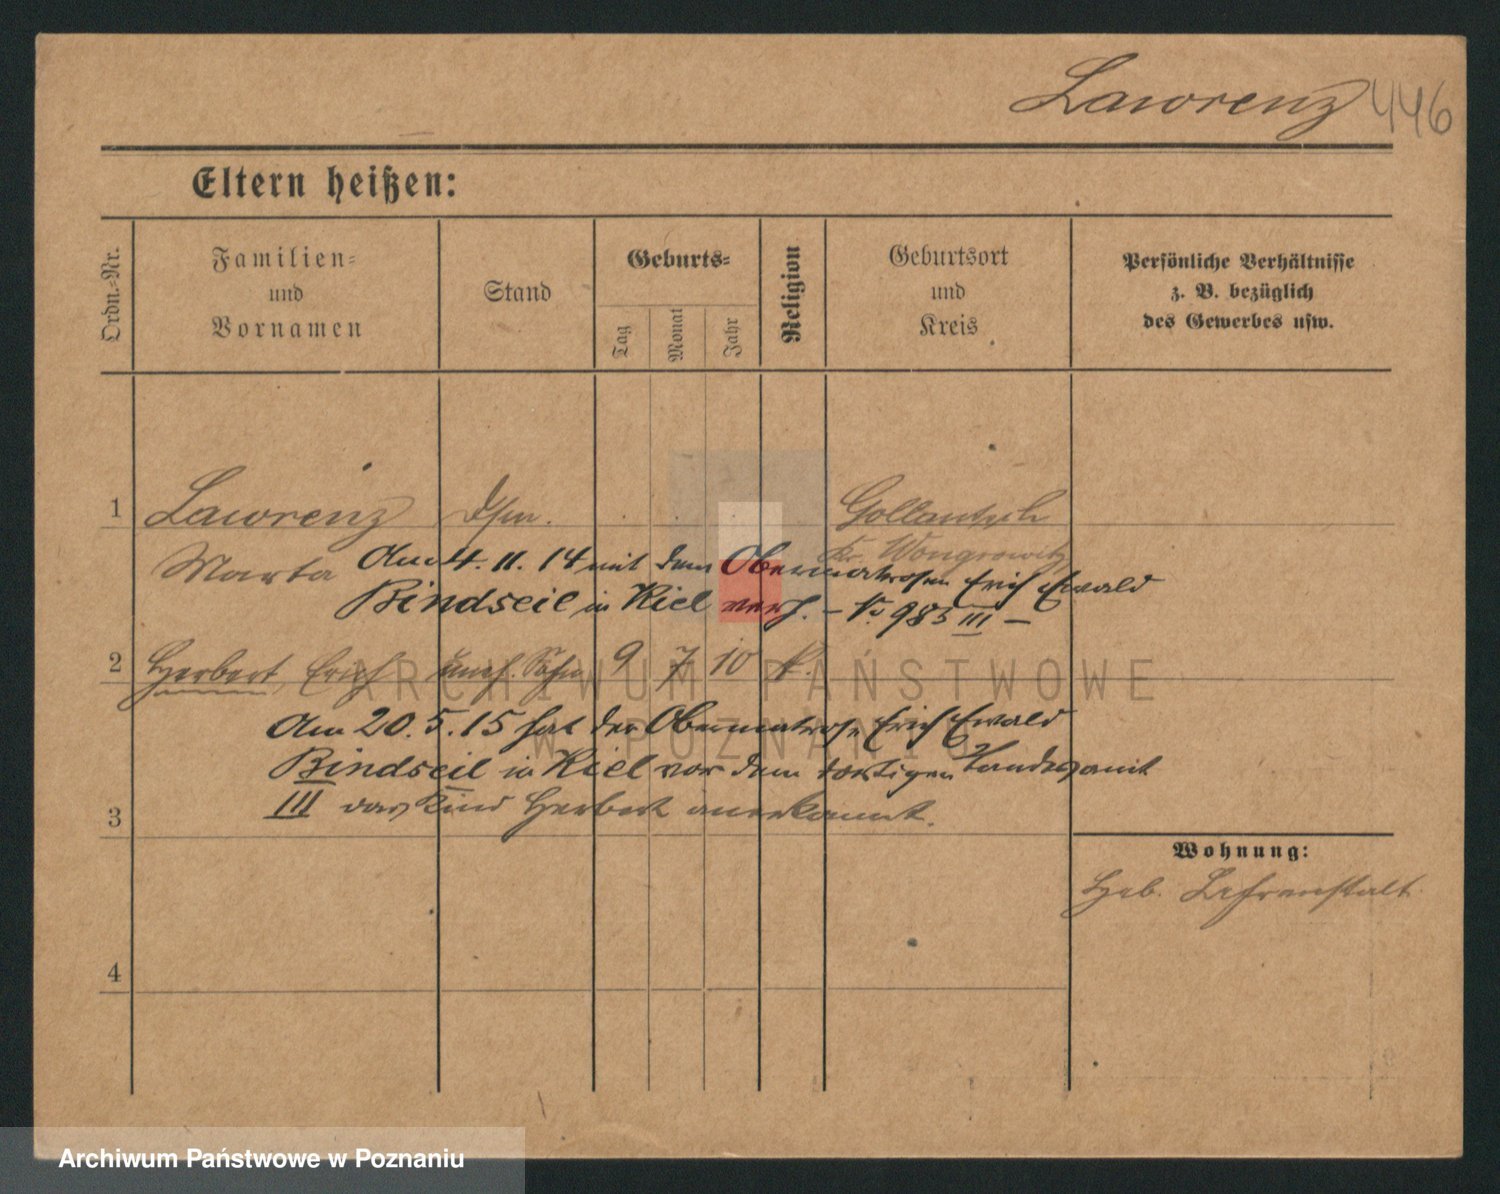 Lawrenz 446
Eltern heißen:
Ordn.-Nr.
Familien-
und
Vornamen
Stand
Geburts-
Tag
Monat
Jahr
Religion
Geburtsort
und
Kreis
Persönliche Verhältnisse
z. B. bezüglich
des Gewerbes usw.
1 Lawrenz Gollantsch
Kr. Wongrowitz
Marta Am 4. 11. 14 mit dem Obermatrosen Erich Ewald
Bindseil in Kiel verh. – No 985 III –
2 Herbert, Erich uneh. Sohn 9 7 10 k.
Am 20. 5. 15 hat der Obermatrose Erich Ewald
Bindseil in Kiel vor dem dortigen Standesamt
III das Kind Herbert anerkannt.
3
Wohnung:
Heb. Lehranstalt
4
ARCHIWUM PAŃSTWOWE
W POZNANIU
Archiwum Państwowe w Poznaniu